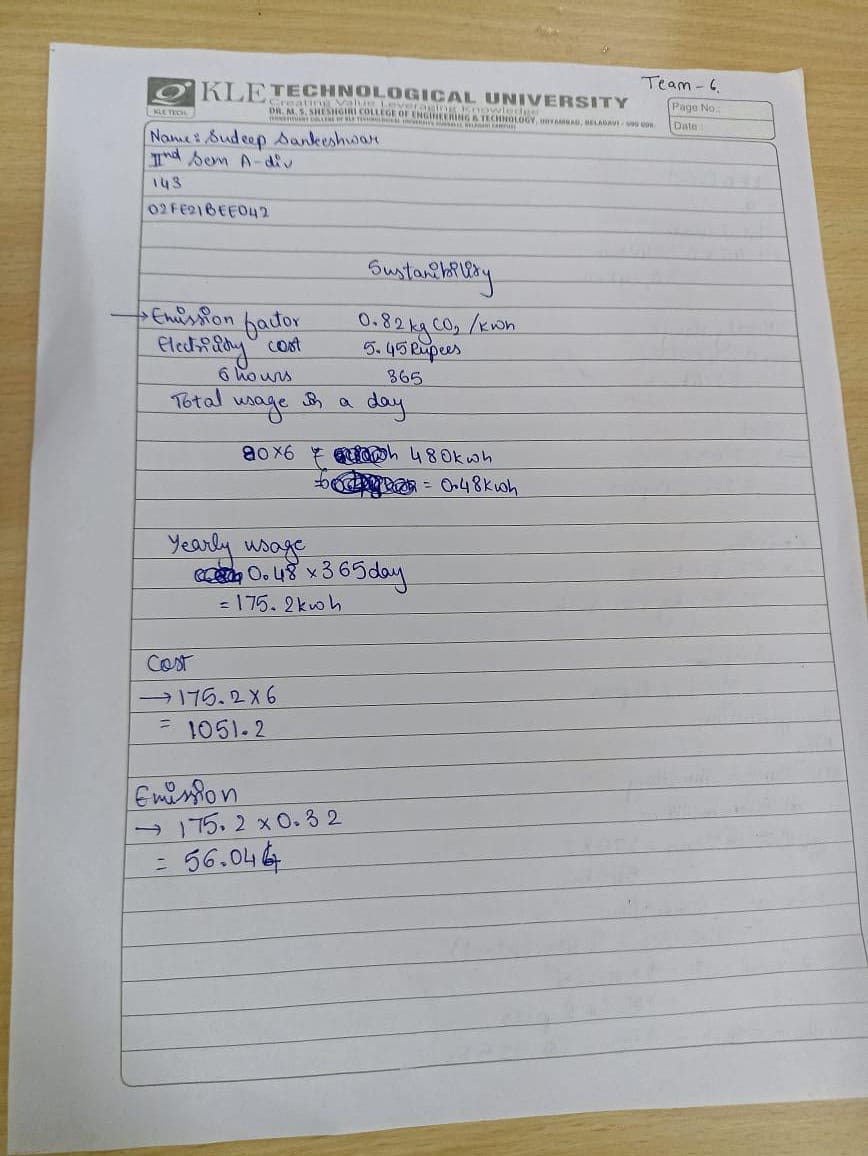 Team - 6.
KLE TECHNOLOGICAL UNIVERSITY
Creating Value Leveraging Knowledge
DR. M. S. SHESHGIRI COLLEGE OF ENGINEERING & TECHNOLOGY, UDYAMBAG, BELAGAVI - 590 008.
KLE TECH
Page No.:
Date :
Name: Sudeep Sankeshwar
IInd Sem A-div
143
02FE21BEE042
Sustanibility
→ Emission factor 0.82 kg CO2 /kwh
Electricity cost 5.45 Rupees
6 hours 365
Total usage in a day
80×6 480kwh
= 0.48kwh
Yearly usage
0.48 × 365day
= 175.2kwh
Cost
→ 175.2 × 6
= 1051.2
Emission
→ 175.2 × 0.32
= 56.064